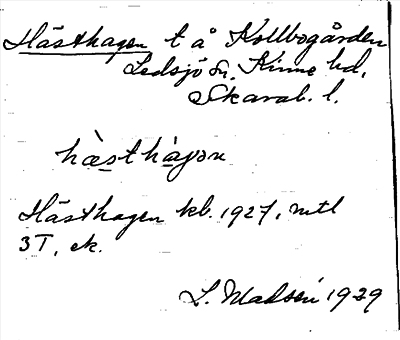 Hästhagen t å Kollbogården
Ledsjö sn. Kinne hd.
Skarab. l.
hæsthagən
Hästhagen kb. 1927, mtl
3T, ek.
L. Madsén 1929